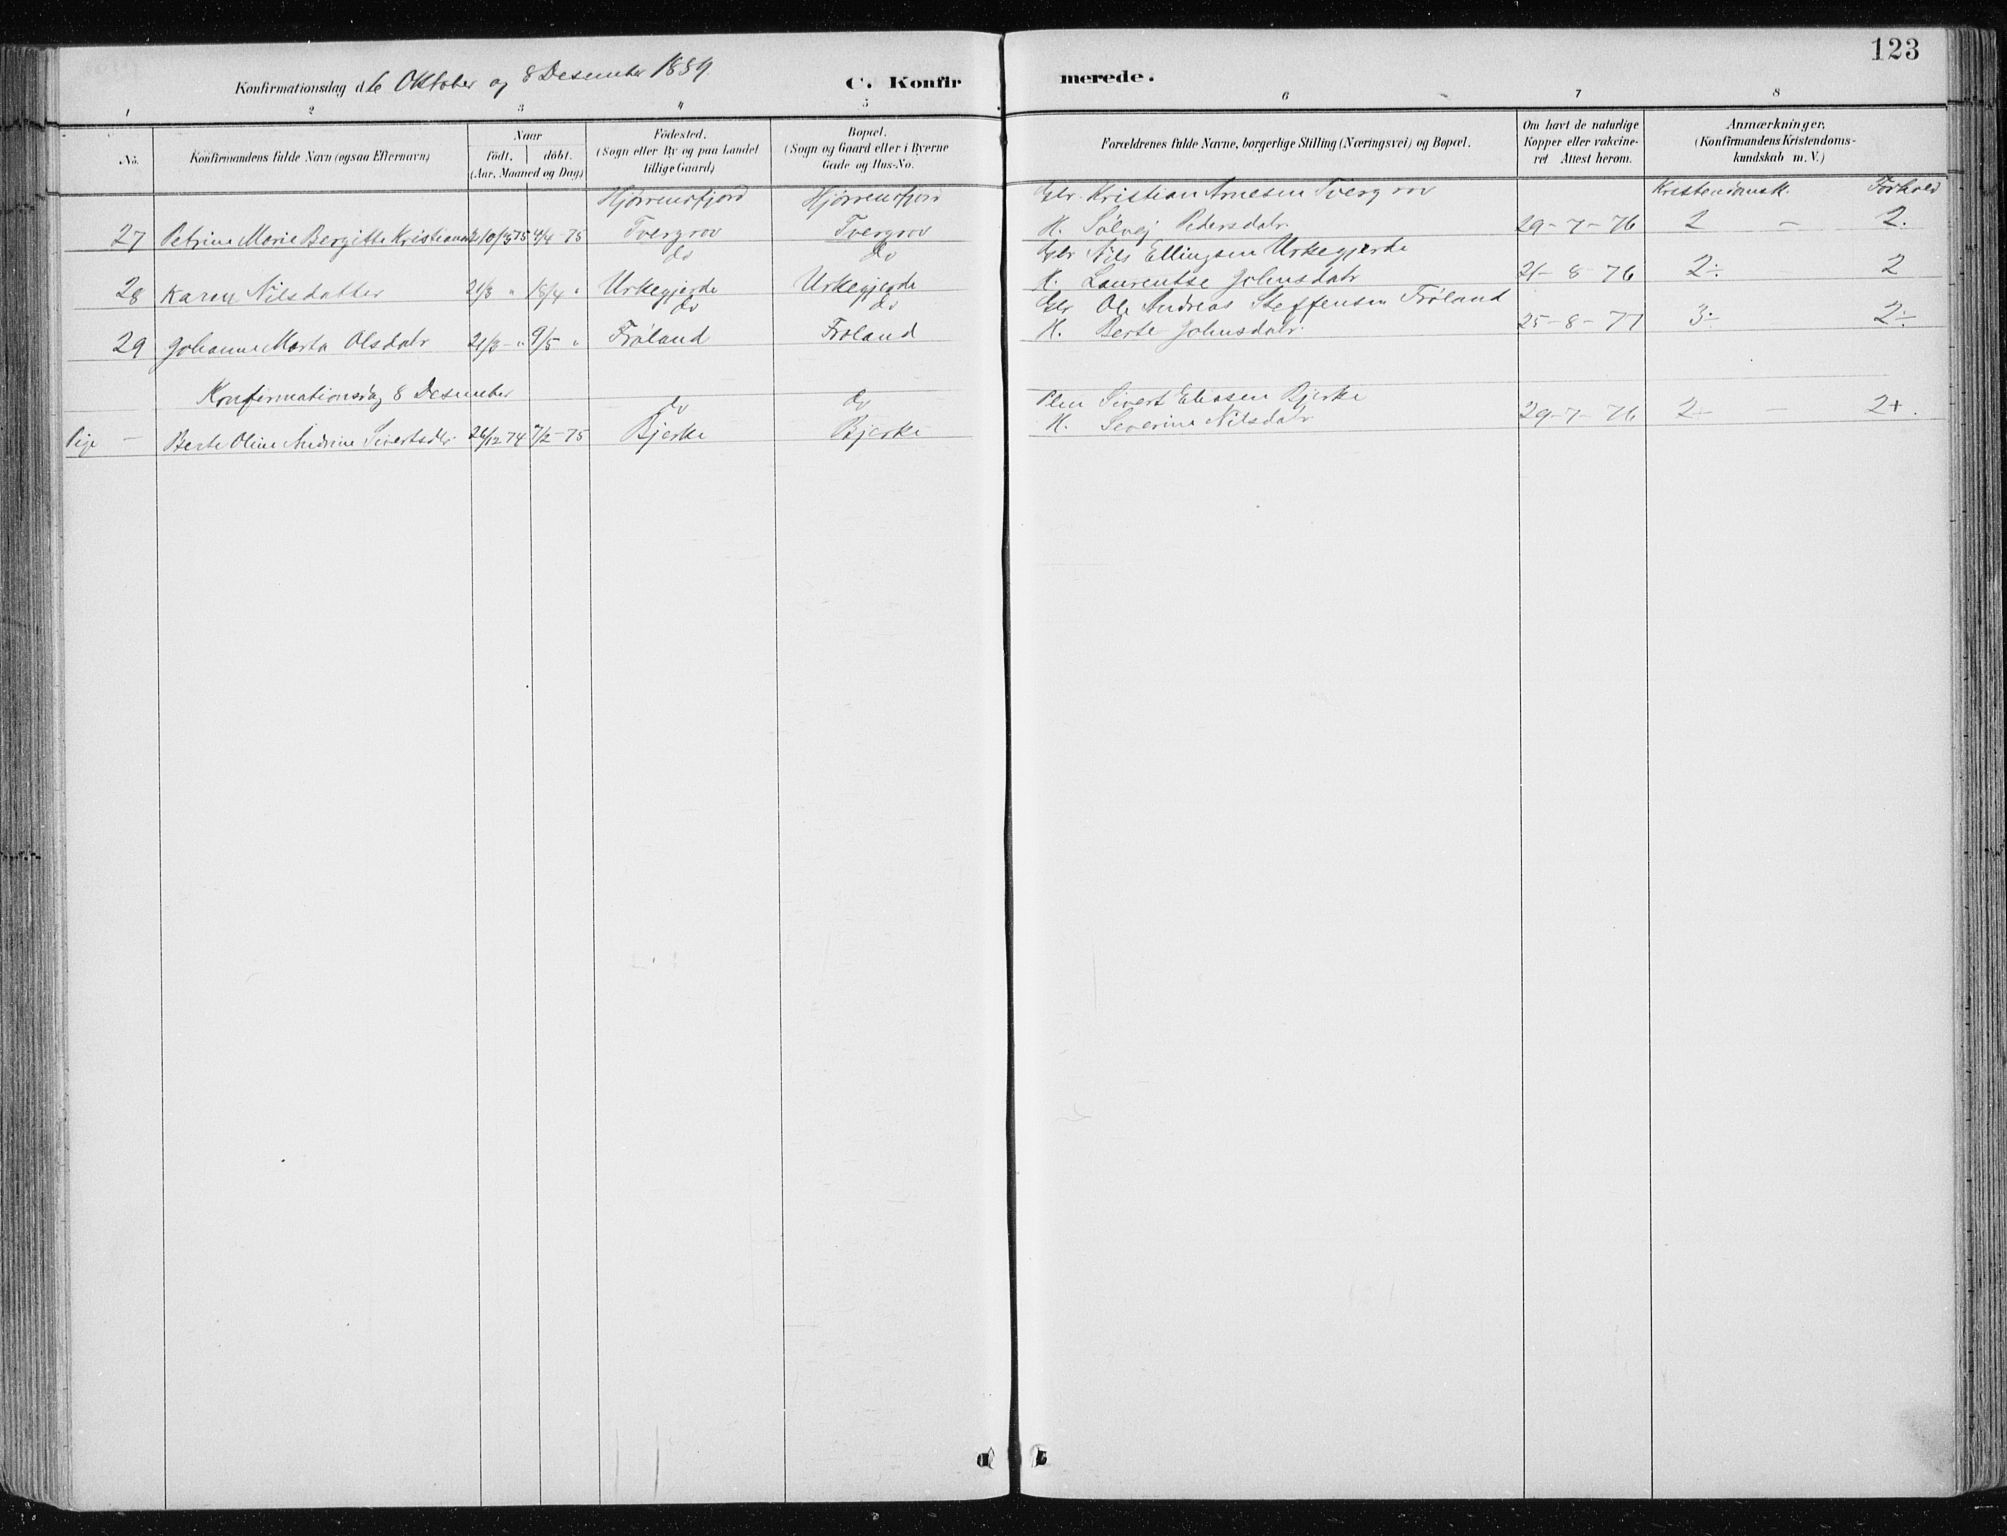 123
Konfirmationsdag d. 6 Oktober og 8 Desember 1889. C. Konfirmerede.
1 2 3 4 5 6 7 8
No. Konfirmandens fulde Navn (ogsaa Efternavn) Naar født. døbt. (Aar, Maaned og Dag) Fødested. (Sogn eller By og paa Landet tillige Gaard) Bopæl. (Sogn og Gaard eller i Byerne Gade og Hus-No. Forældrenes fulde Navne, borgerlige Stilling (Næringsvei) og Bopæl. Om havt de naturlige Kopper eller vakcineret Attest herom. Anmærkninger. (Konfirmandens Kristendomskundskab m. V.)
Hjørrensfjord Hjørrensfjord Gbr. Kristian Arnesen Tvergrov Kristendomsk. Forhold
27 Petrine Marie Bergitte Kristians 4/4 - 75 Tvergrov Tvergrov H. Sølvej Pedersdatr 29-7-76 2 - 2.
do do Gbr Nils Ellingsen Urkegjerde
28 Karen Nilsdatter 21/3 " 18/4 " Urkegjerde Urkegjerde H. Laurentse Johnsdatr 21-8-76 2÷ 2
do do Gbr Ole Andreas Steffensen Frøland
29 Johanne Marta Olsdatr 21/3 - " 9/5 " Frøland Frøland H. Berte Johnsdatr. 25-8-77 3- 2÷
Konfirmationsdag 8 Desember
do do Sivert Eliasen Bjerke
Pige - Berte Oline Andrine Sivertsdr. 26/12 74 7/2 - 75 Bjerke Bjerke H. Severine Nilsdatr 29-7-76 2- - 2+.